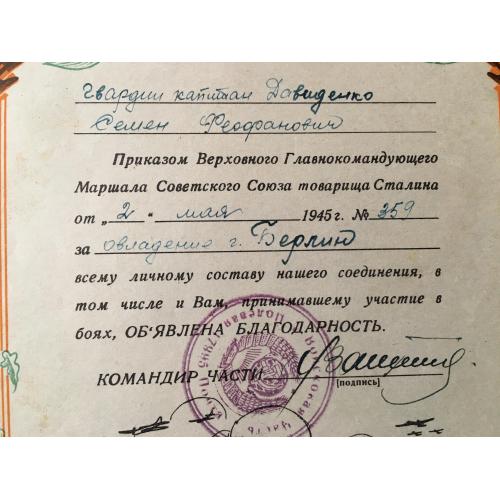 Гвардии капитан Давиденко
Семен Феофанович
Приказом Верховного Главнокомандующего
Маршала Советского Союза товарища Сталина
от „2“ мая 1945 г. № 359
за овладение г. Берлин
всему личному составу нашего соединения, в
том числе и Вам, принимавшему участие в
боях, ОБ'ЯВЛЕНА БЛАГОДАРНОСТЬ.
КОМАНДИР ЧАСТИ
[подпись]
Полевая